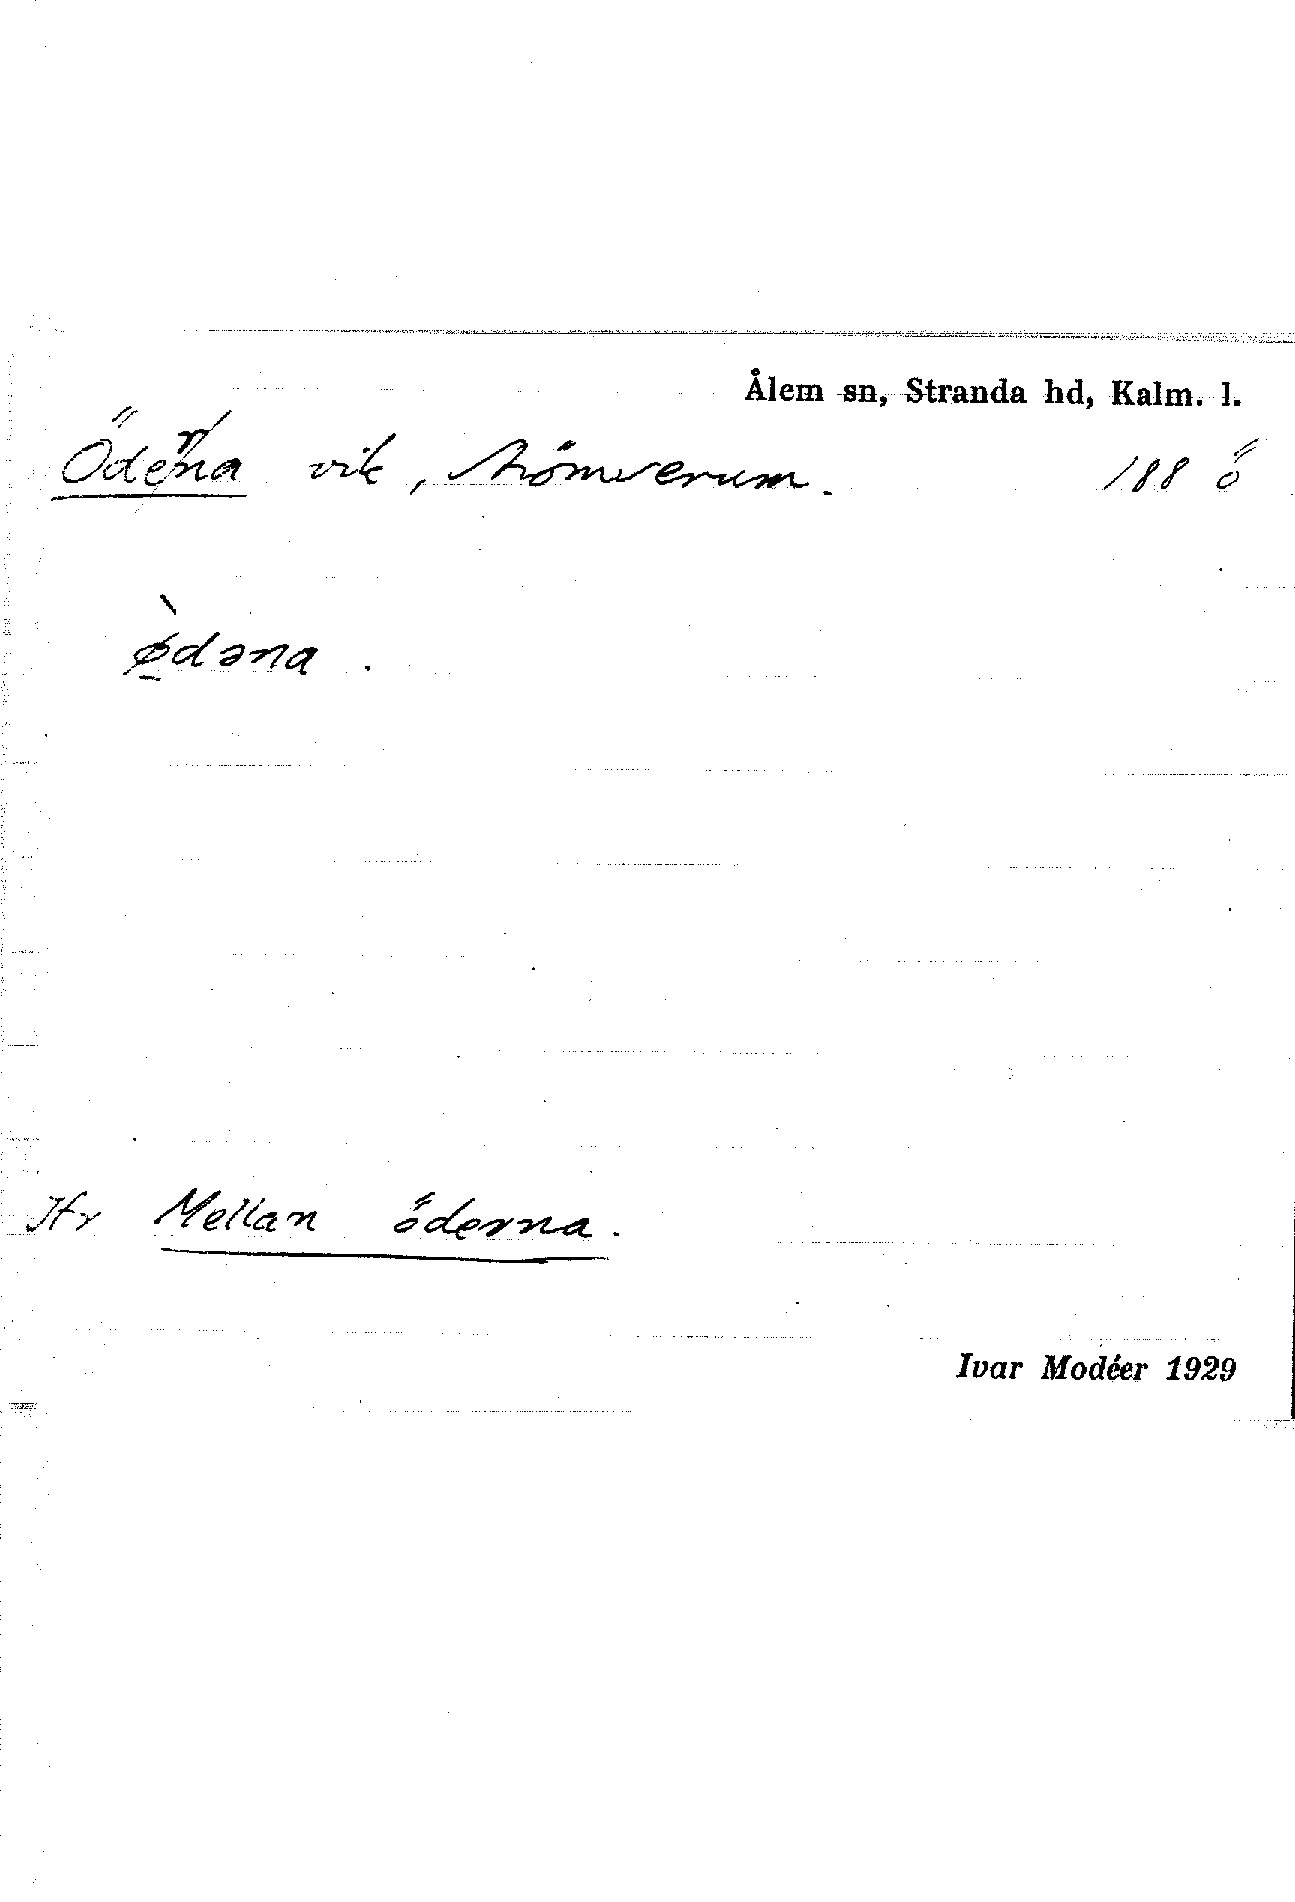 Ålem sn, Stranda hd, Kalm. l.
Öderna vik, Strömserum. 188 ö
ø̀dəna.
Jfr Mellan öderna.
Ivar Modéer 1929